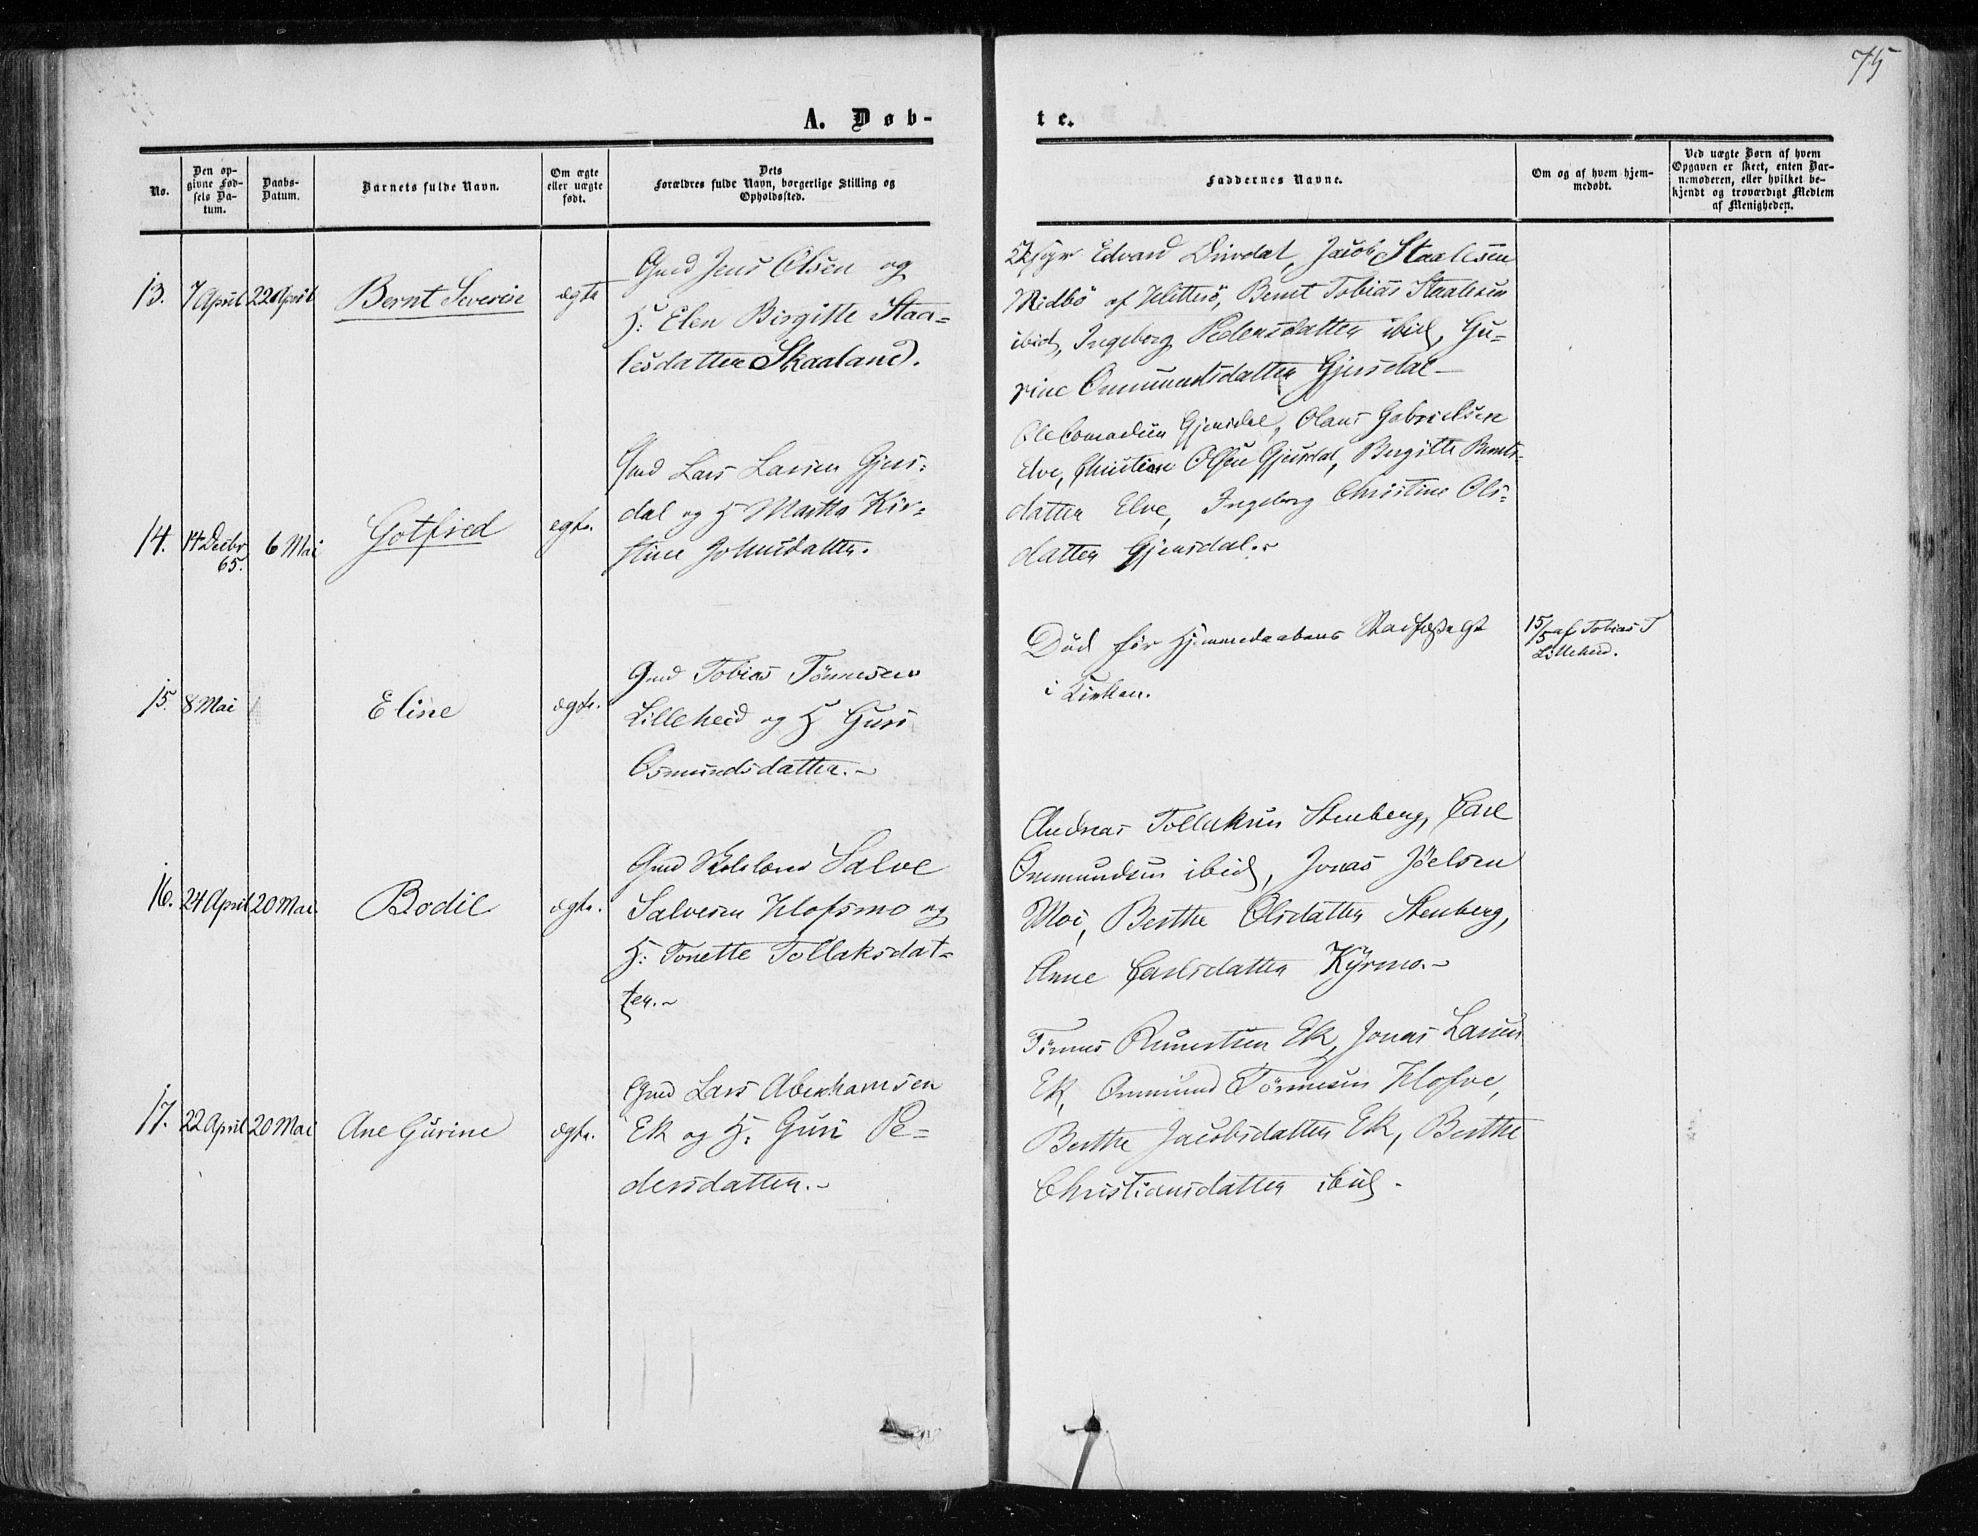 75
A. Døb-
te.
No.
Den op-
givne Fød-
sels Da-
tum.
Daabs-
Datum.
Barnets fulde Navn.
Om ægte
eller uægte
født.
Dets
Forældres fulde Navn, borgerlige Stilling og
Opholdssted.
Faddernes Navne.
Om og af hvem hjem-
medøbt.
Ved uægte Børn af hvem
Opgaven er skeet, enten Bar-
nemoderen, eller hvilket be-
kjendt og troværdigt Medlem
af Menigheden.
13.
7 April
22 April
Bernt Severin
ægte
Gmd Jens Olsen og
H: Elen Birgitte Staa-
lesdatter Skaaland.
Edvard Dirdal, Jacob Staalesen
Midbö af Hitterö, Bernt Tobias Staalesen
ibid, Ingeborg Pedersdatter ibid, Gu-
rine Ommundsdatter Gjersdal
14.
14 Decbr
65.
6 Mai
Gotfred
egte.
Gmd Lars Larsen Gjers-
dal og H Martha Kir-
stine Johnsdatter.
Ole Gjersdal, Olaus Gabrielsen
Elve, Christian Olsen Gjersdal, Birgitte Bernts-
datter Elve, Ingeborg Christine Ols-
datter Gjersdal.
15.
8 Mai
Eline
ægte.
Gmd Tobias Tönnesen
Lilleheid og H Guri
Osmundsdatter.
Död för Hjemmedaabens Stadfæstelse
i Kirken.
15/5 af Tobias T
Lilleheid.
16.
24 April
20 Mai
Bodil
ægte.
Gmd Salve
Salvesen Klofsmo og
H: Tonette Tollaksdat-
ter.
Andreas Tollaksen Stenberg, Carl
Ommundsen ibid, Jonas Joelsen
Moi, Berthe Olsdatter Stenberg,
Anne Carlsdatter Kyrmo.
17.
22 April
20 Mai
Ane Gurine
ægte.
Gmd Lars Abrahamsen
Ek og H: Guri Pe-
dersdatter.
Tönnes Ek, Jonas Larsen
Ek, Ommund Tönnesen Klofve,
Berthe Jacobsdatter Ek, Berthe
Christiansdatter ibid.